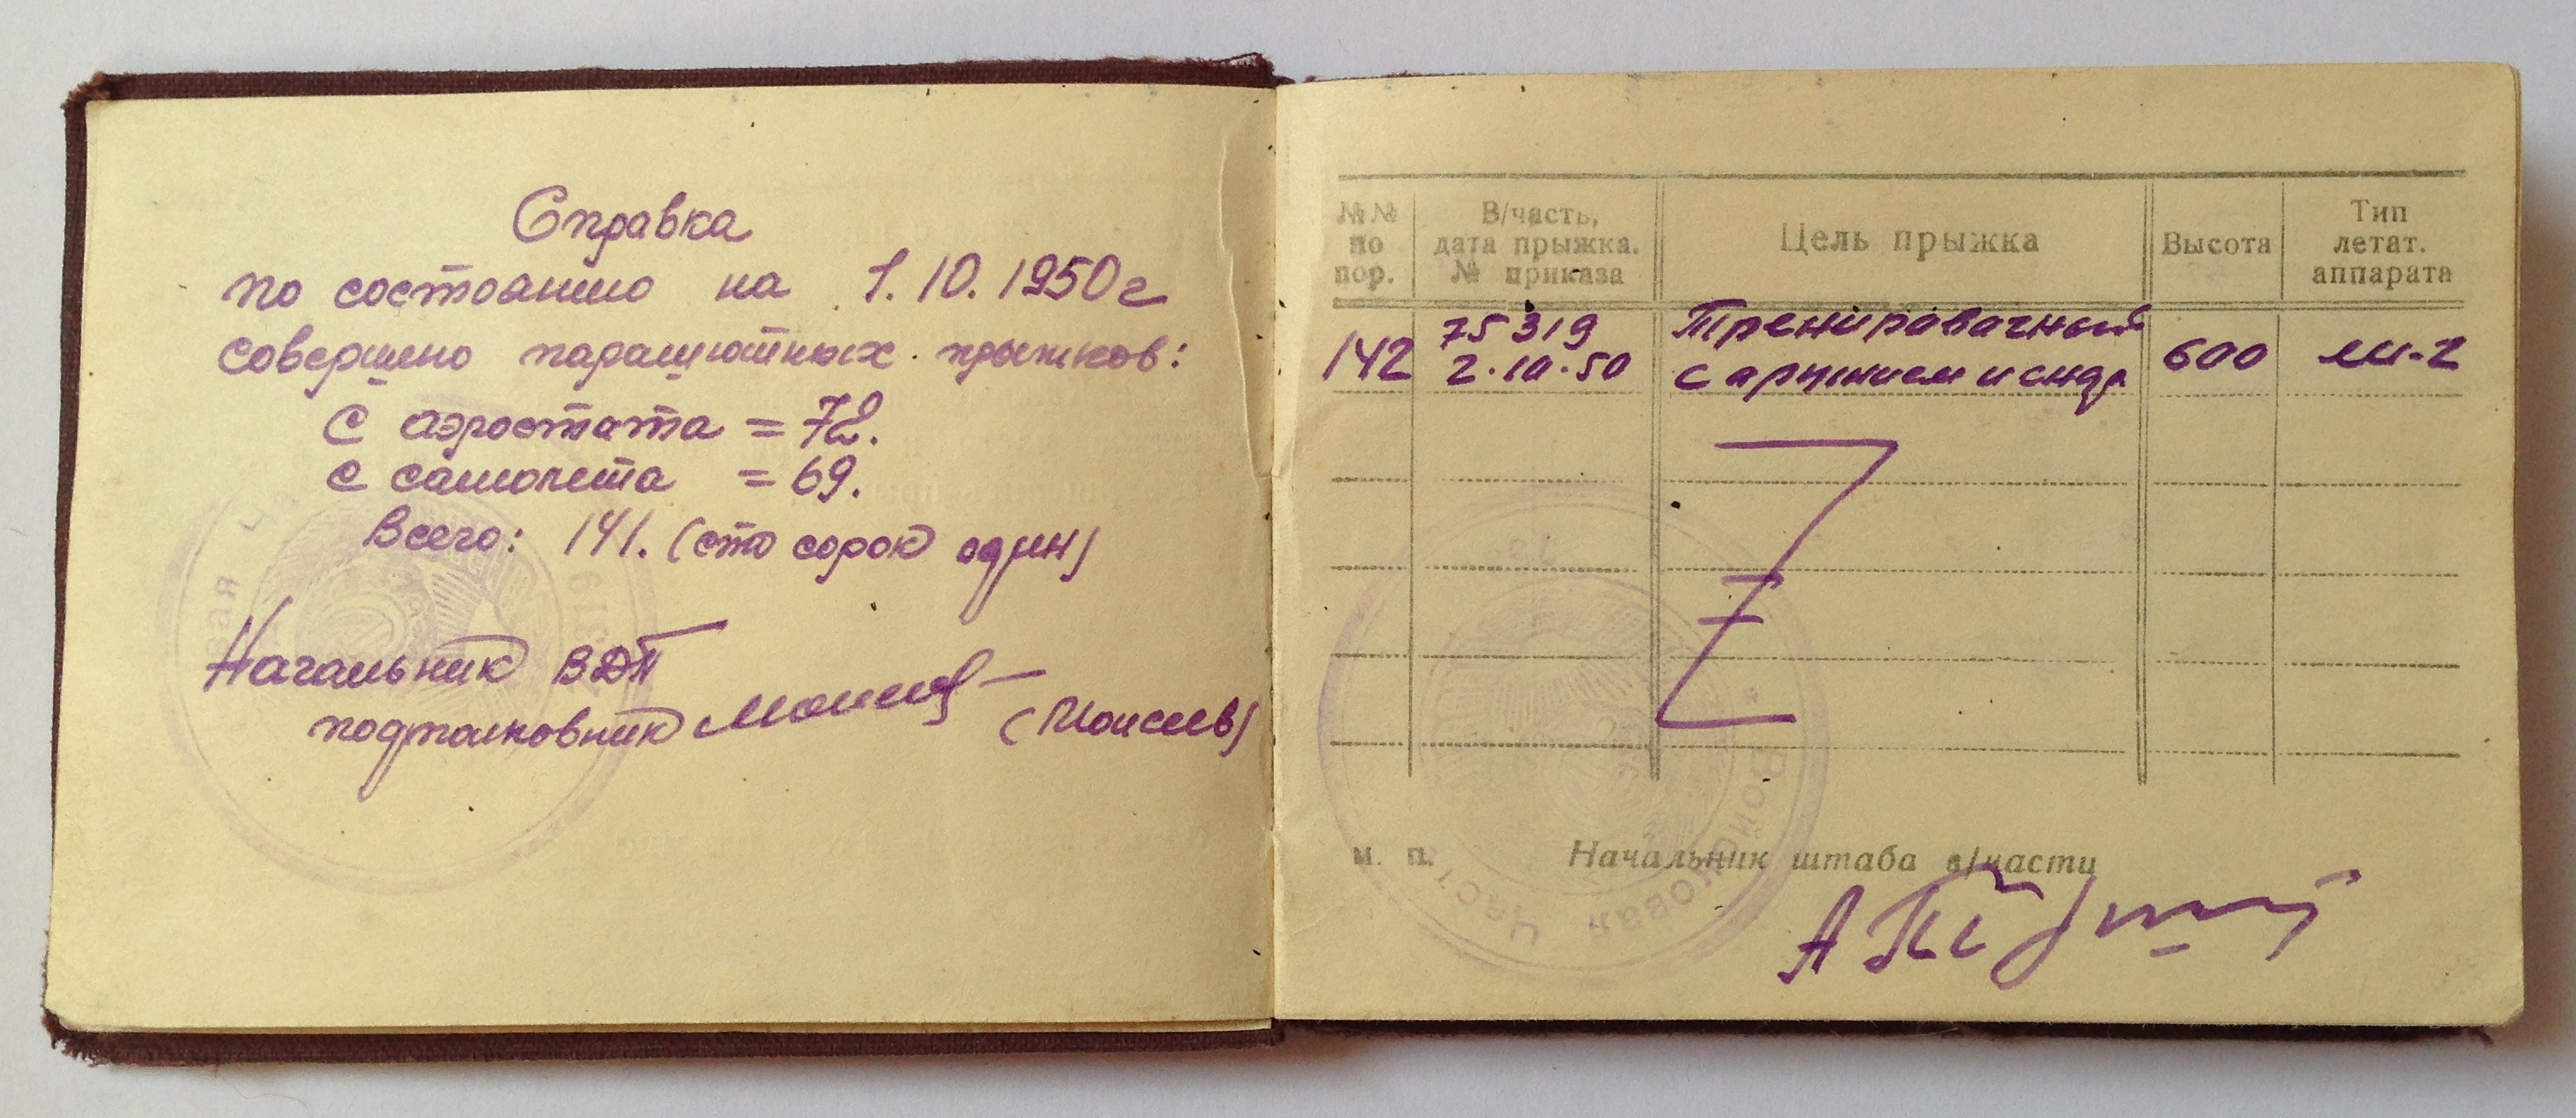 Справка
по состоянию на 1.10.1950г
совершено парашютных прыжков:
с аэростата = 72.
с самолета = 69.
Всего: 141. (сто сорок один)
Начальник ВДП
подполковник
(Моисеев)
№№ по пор.
В/часть, дата прыжка. № приказа
Цель прыжка
Высота
Тип летат. аппарата
142
75319
2.10.50
Тренировачный
с аружием и снар
600
Ли-2
м. п.
Начальник штаба в/части
Войсковая часть